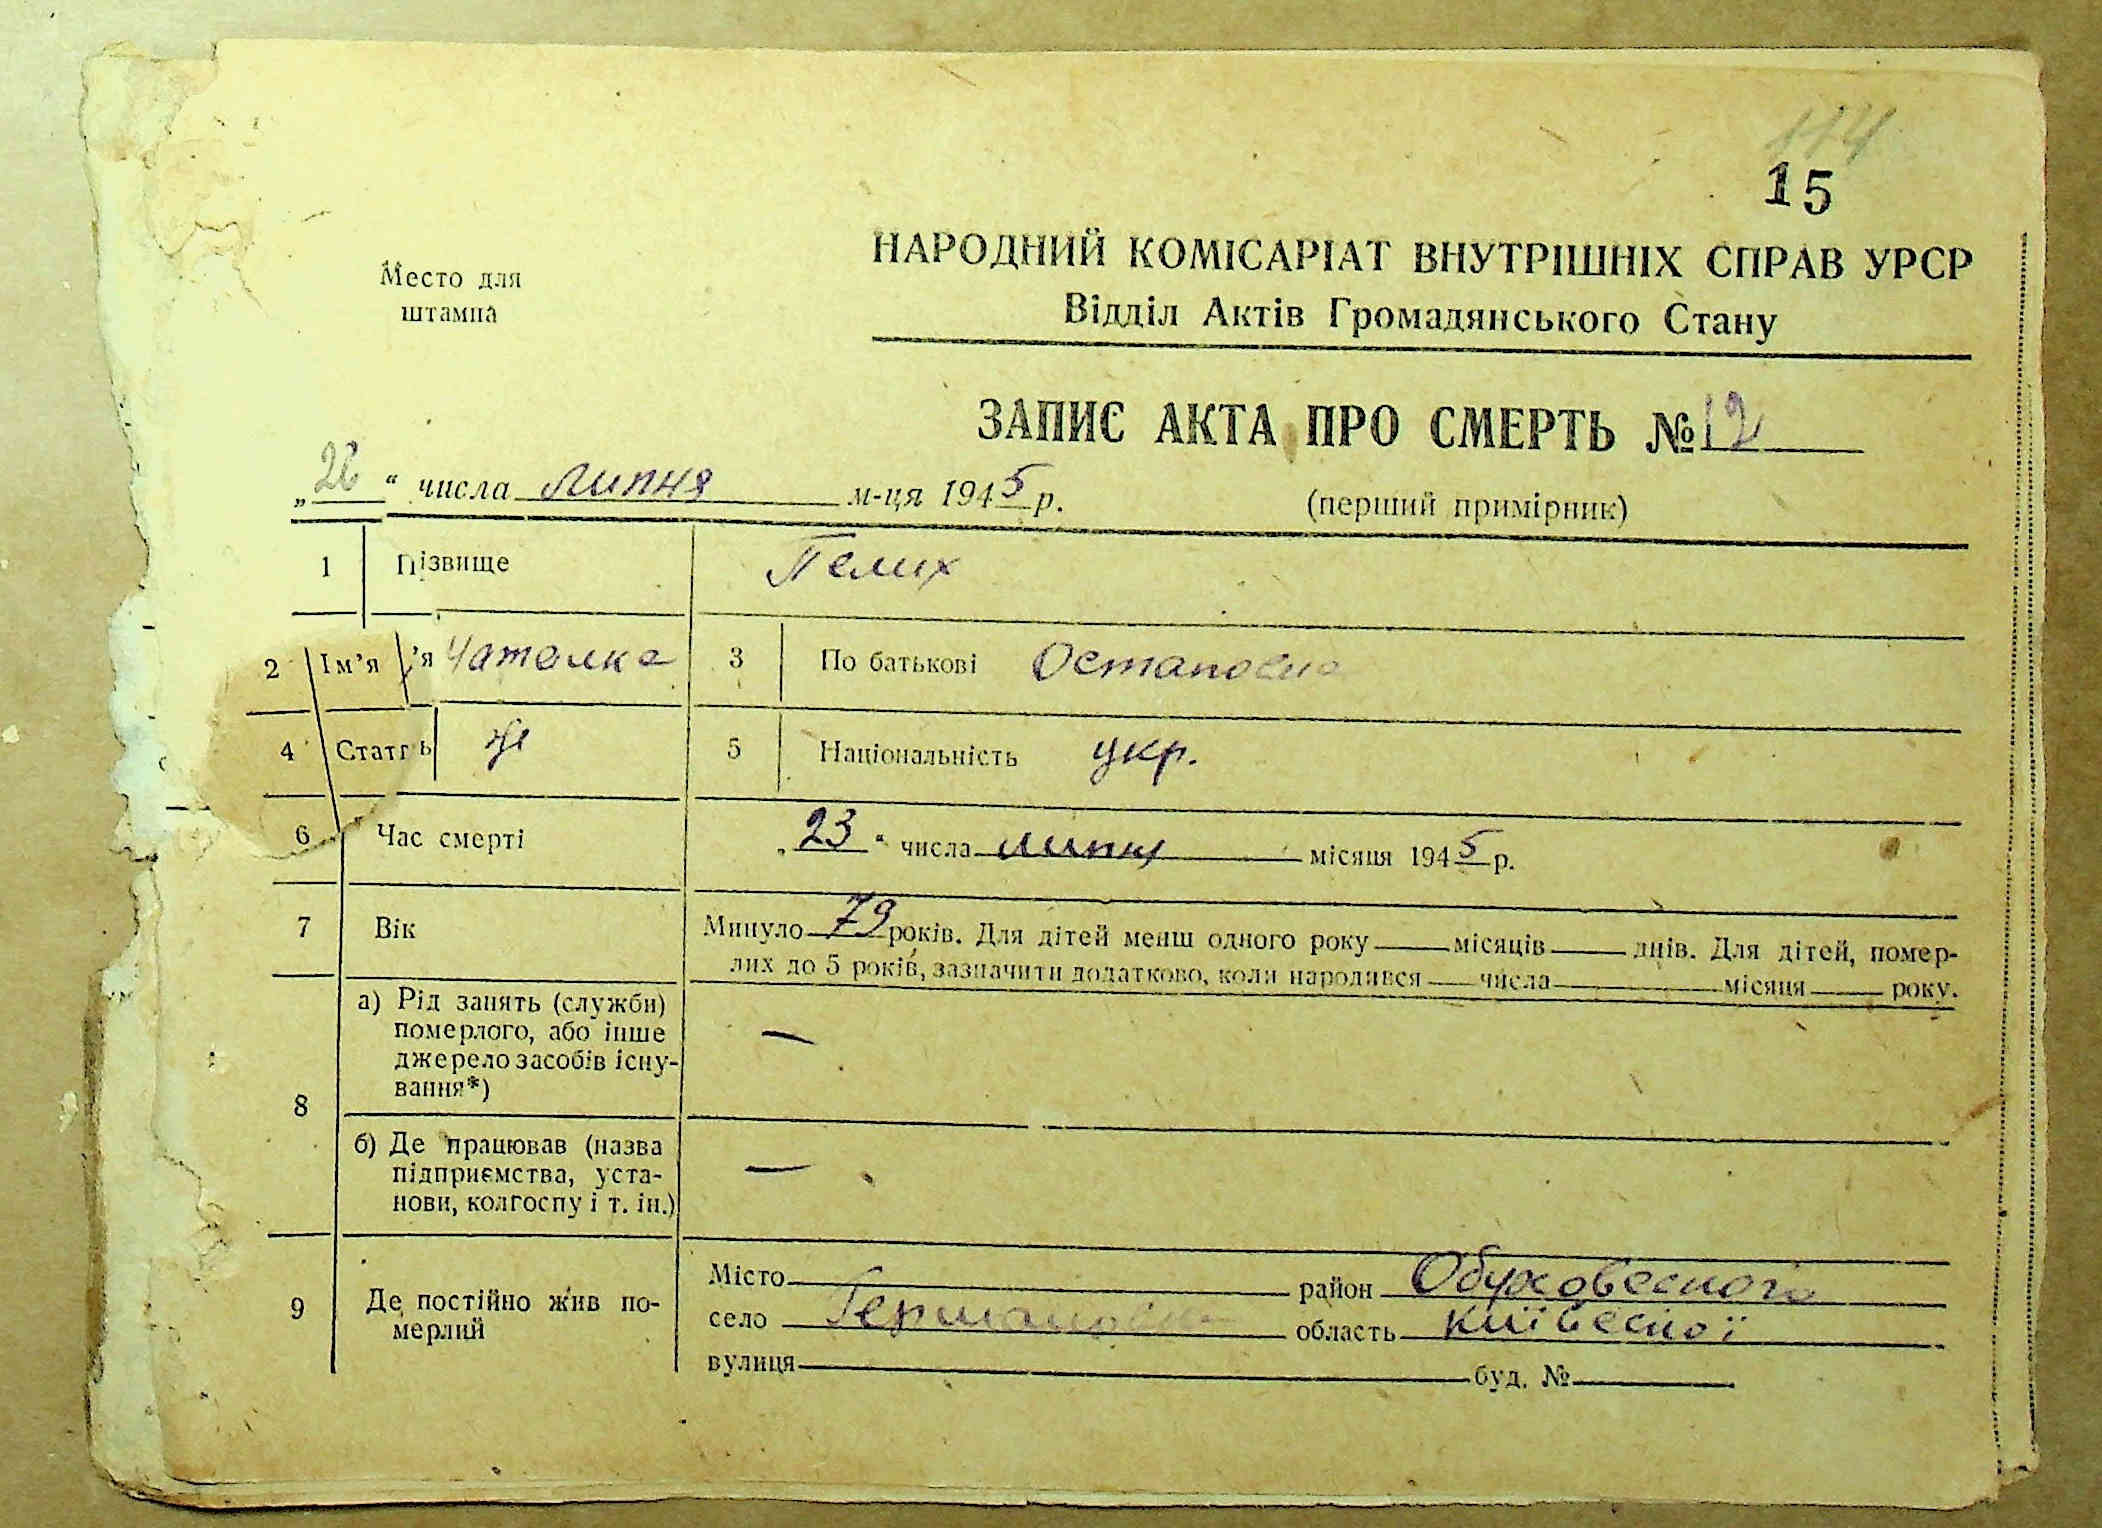 114
15
Место для
штампа
НАРОДНИЙ КОМІСАРІАТ ВНУТРІШНІХ СПРАВ УРСР
Відділ Актів Громадянського Стану
ЗАПИС АКТА ПРО СМЕРТЬ № 12
„26“ числа липня м-ця 1945 р.
(перший примірник)
1 Прізвище Пелих
2 Ім’я ’я Наталка 3 По батькові Остаповна
4 Стать ж 5 Національність укр.
6 Час смерті „23“ числа липня місяця 1945 р.
7 Вік Минуло 79 років. Для дітей менш одного року місяців днів. Для дітей, помер-
лих до 5 років, зазначити додатково, коли народився числа місяця року.
8 а) Рід занять (служби)
померлого, або інше
джерело засобів існу-
вання*)
—
б) Де працював (назва
підприємства, уста-
нови, колгоспу і т. ін.)
—
9 Де постійно жив по-
мерлий
Місто район Обуховського
село Германовка область Київської
вулиця буд. №